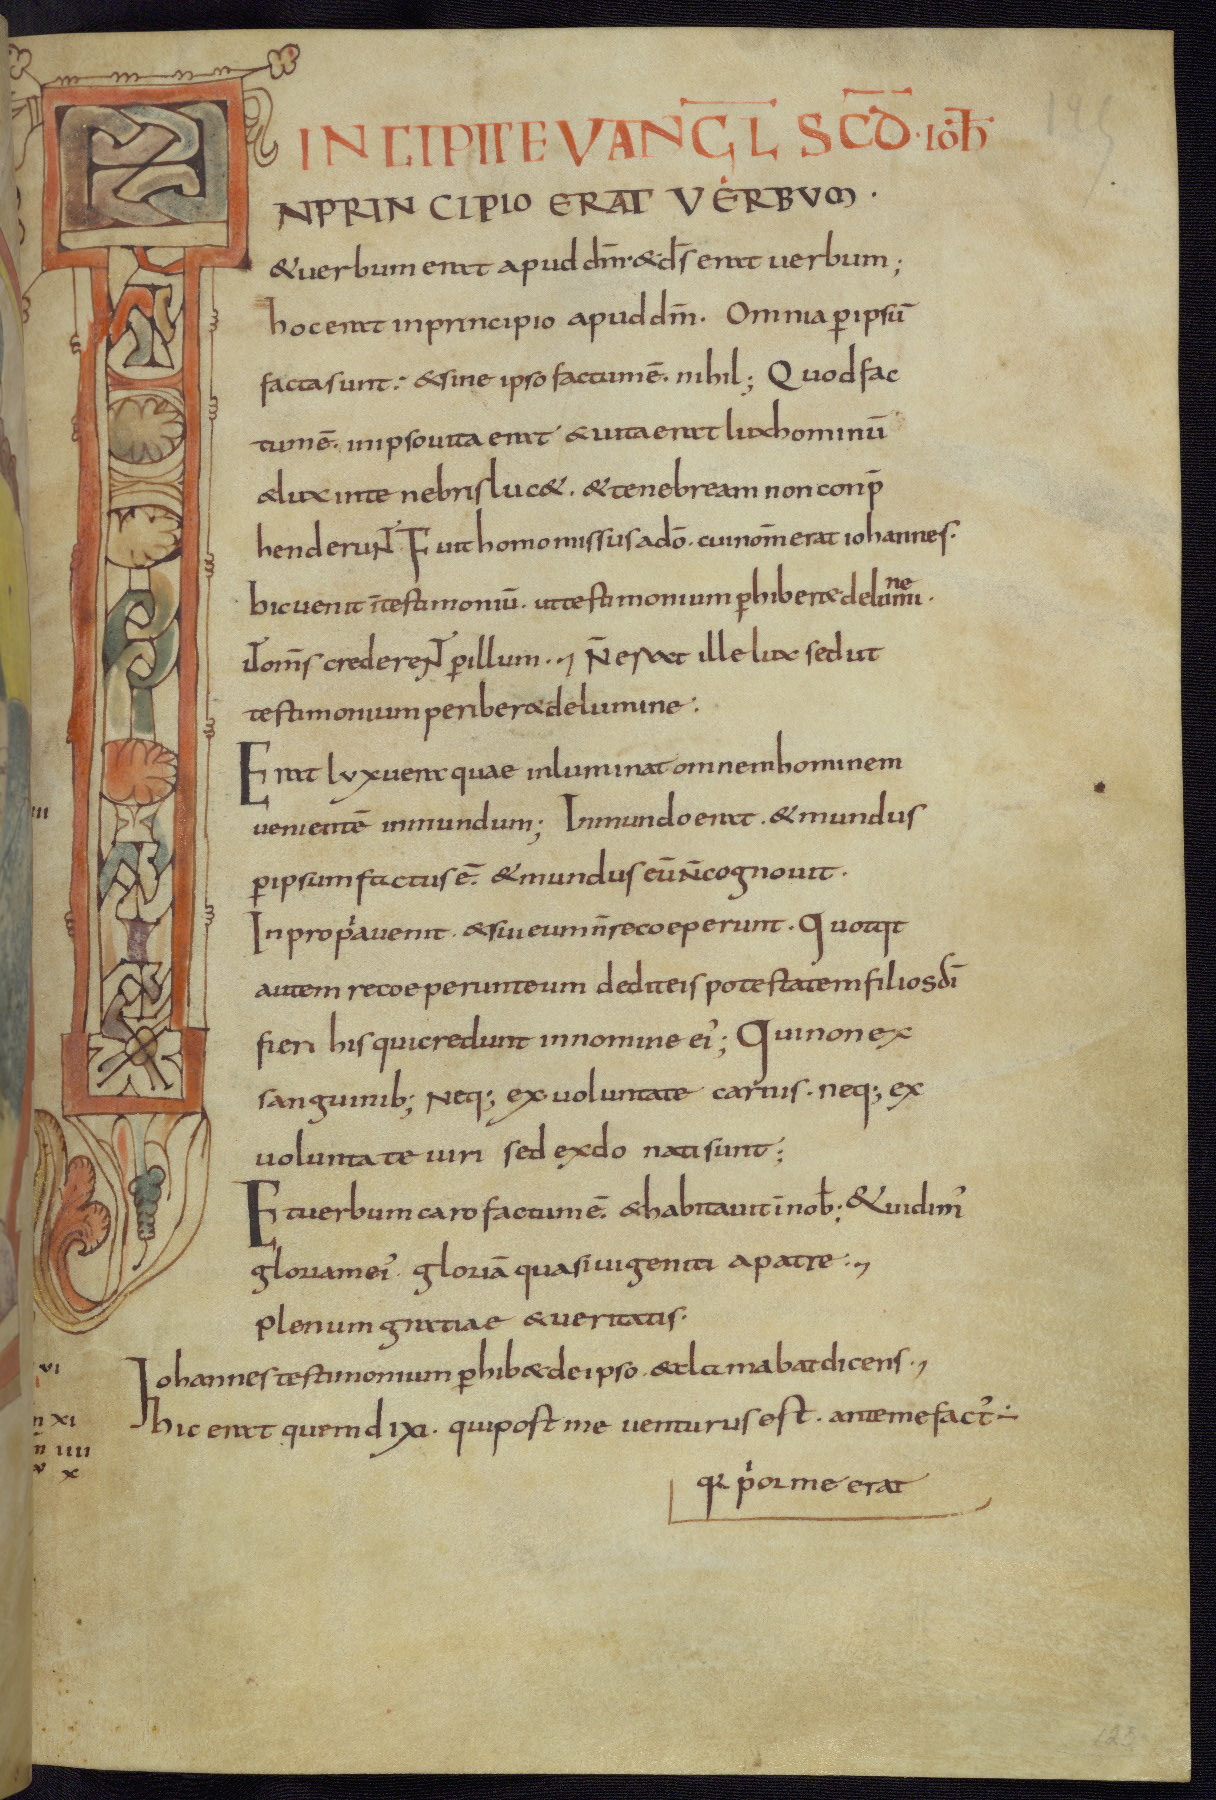 INCIPIT EVANGL̅ SCD̅ · IOH̅
NPRINCIPIO ERAT VERBUM ·
&verbum erat apud dm̅ &ds̅ erat uerbum ;
hoc erat inprincipio apud dm̅. Omnia p̲ ipsu̅
facta sunt : & sine ipso factum e̅. nihil ; Quod fac
tum e̅. in ipso uita erat & uita erat lux hominu̅
& lux inte nebris luc&. & tenebre am non conp̅
henderuNT Fuit homo missus ado̅ · cui nom̅ erat iohannes.
hic uenit in̅ testimoniu̅ · ut testimonium p̲hiber& de lumine ·
ut om̅s credereNT p̲ illum ·, N̅ erat ille lux sed ut
testimonium periber& de lumine :
Erat lux uera quae inluminat omnem hominem
ueniente̅ inmundum ; Inmundo erat · & mundus
p̲ ipsum factus e̅. & mundus eu̅ N̅ cognouit ·
In prop̲a uenit · & sui eum n̅ recoeperunt · Quotqt
autem recoeperunt eum dedit eis potestatem filios di̅
fieri his qui credunt in nomine ei᾽ ; Qui non ex
sanguinib; Neq; ex uoluntate carnis · neq; ex
uoluntate uiri sed exdo nati sunt ;
Et uerbum caro factum e̅. & habitauit in̅ nob̅ ; & uidim᾽
gloriam ei᾽. gloria̅ quasi uigeniti a patre ·,
plenum gratiae & ueritatis ·
Iohannes testimonium p̲hib& de ipso · & clamabat dicens ·,
hic erat quem dixi · qui post me uenturus est · ante me fact᾽ :
qR p̲or me erat
III
VI
XI
IIII
X
195
123